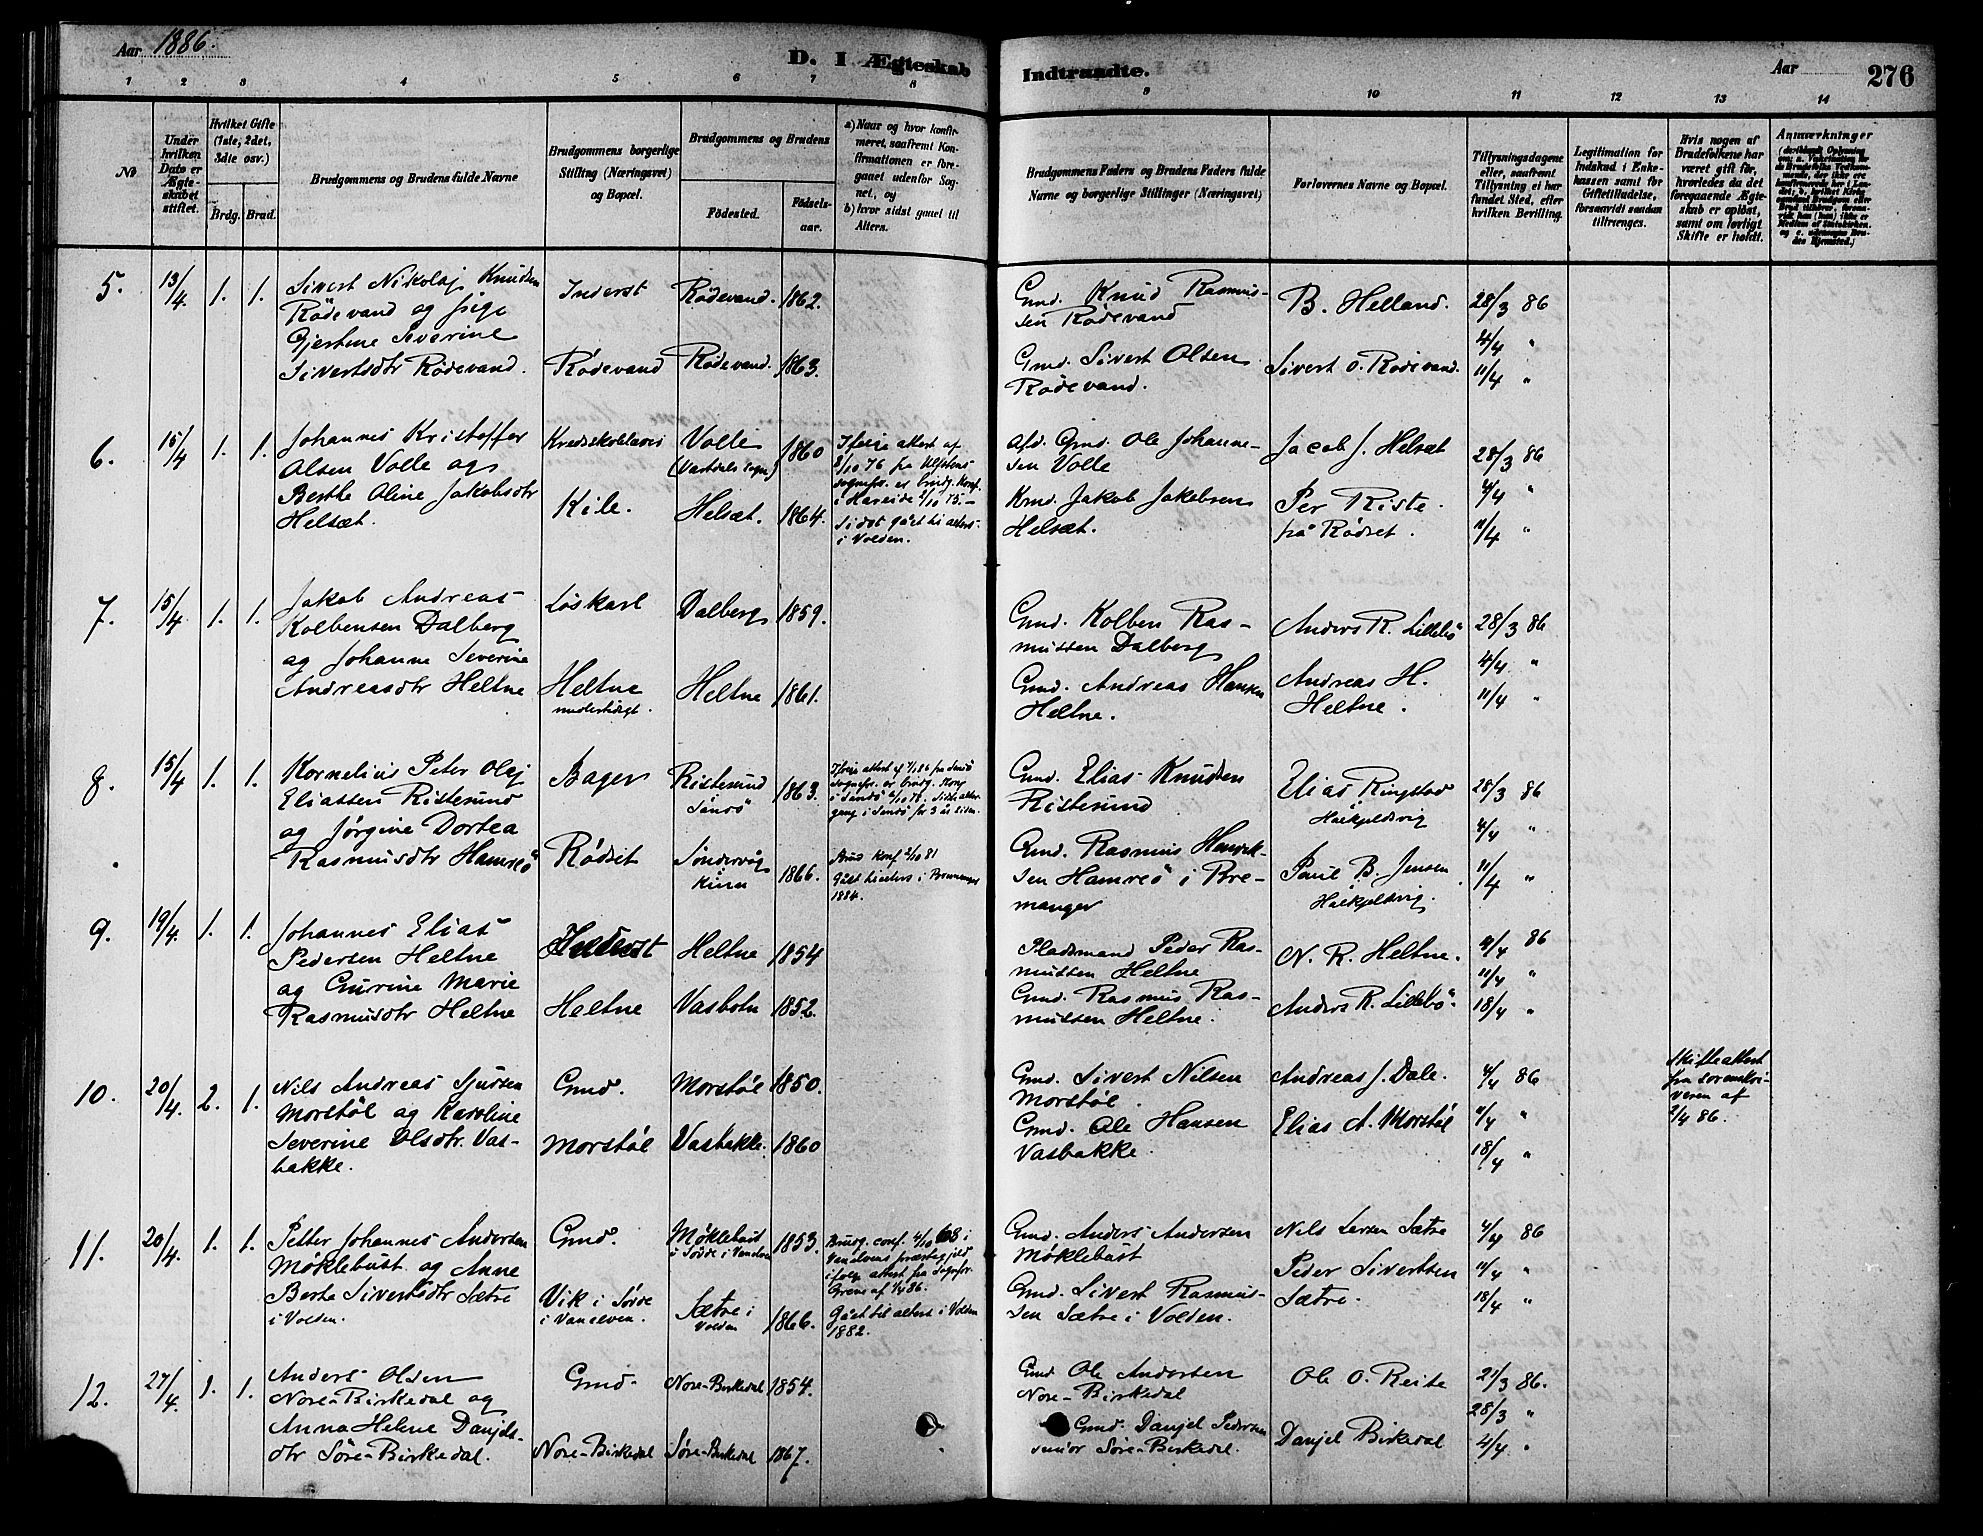 Aar 1886.
D. I Ægteskab Indtraadte.
Aar
276
1 2 3 4 5 6 7 8 9 10 11 12 13 14
No
Under hvilken Dato er Ægteskabet stiftet.
Hvilket Gifte (1ste, 2det, 3die osv.)
Brdg. Brud.
Brudgommens og Brudens fulde Navne
Brudgommens borgerlige Stilling (Næringsvei) og Bopæl.
Brudgommens og Brudens
Fødested.
Fødsels-aar.
a) Naar og hvor konfirmeret, saafremt Konfirmationen er foregaaet udenfor Sognet, og
b) hvor sidst gaaet til Alters.
Brudgommens Faders og Brudens Faders fulde Navne og borgerlige Stillinger (Næringsvei)
Forlovernes Navne og Bopæl.
Tillysningsdagene eller, saafremt Tillysning ei har fundet Sted, efter hvilken Bevilling.
Legitimation for Indskud i Enkekassen samt for Giftetilladelse, forsaavidt saadan tiltrænges.
Hvis nogen af Brudefolkene har været gift før, hvorledes da det foregaaende Ægteskab er opløst, samt om lovligt Skifte er holdt.
Anmærkninger
5. 13/4 1. 1.
Sivert Nikolaj Knudsen
Rødevand og pige
Gjertine Severine
Sivertsdtr Rødevand.
Inderst
Rødevand
Rødevand. 1862.
Rødevand. 1863.
Gmd. Knud Rasmus-
sen Rødevand
Gmd. Sivert Olsen
Rødevand.
B. Helland.
Sivert O. Rødevand.
28/3 86
4/4 "
11/4 "
6. 15/4 1. 1.
Johannes Kristoffer
Olsen Volle og
Berthe Oline Jakobsdtr
Helsæt.
Kile.
Volle
(Vartdals sogn) 1860
Helsæt. 1864.
Ifølge attest af
8/10 76 fra Ulfstens
sognepr. er brudg. konf.
i Hareide 3/10 75.-
Sidst gået til alters
i Volden.
Afd. Gmd. Ole Johanne-
sen Volle
Kmd. Jakob Jakobsen
Helsæt.
Jacob J. Helsæt
Per Riste
på Rødset.
28/3 86
4/4 "
11/4 "
7. 15/4 1. 1.
Jakob Andreas
Kolbensen Dalberg
og Johanne Severine
Andreasdtr Heltne
Løskarl
Heltne
Dalberg 1859.
Heltne 1861.
Gmd. Kolben Ras-
mussen Dalberg
Gmd. Andreas Hansen
Heltne.
Anders R. Lillebø
Andreas H.
Heltne.
28/3 86
4/4 "
11/4 "
8. 15/4 1. 1.
Kornelius Peter Olaj
Eliassen Ristesund
og Jørgine Dortea
Rasmusdtr Hamreø
Bager
Rødset
Ristesund
Sandø 1863.
Søndervåg
Kinn 1866.
Brud konf. 2/10 81
Gået til alters i Bremanger
1884.
Gmd. Elias Knudsen
Ristesund
Gmd. Rasmus Henrik-
sen Hamreø i Bre-
manger
Elias Ringstad
Håkjeldsvig
Paul B. Jensen
Håkjeldsvig.
28/3 86
4/4 "
11/4 "
9. 19/4. 1. 1.
Johannes Elias
Pedersen Heltne
og Gurine Marie
Rasmusdtr Heltne
Heltne
Heltne 1854
Vasbotn 1852.
Pladsmand Peder Ras-
mussen Heltne
Gmd. Rasmus Ras-
mussen Heltne.
N. R. Heltne.
Anders R. Lillebø.
4/4 86
11/4 "
18/4 "
10. 20/4. 2. 1.
Nils Andreas Sjursen
Morstøl og Karoline
Severine Olsdtr. Vas-
bakke.
Gmd.
Morstøl
Morstøl 1850.
Vasbakke. 1860
Gmd. Sivert Nilsen
Morstøl.
Gmd. Ole Hansen
Vasbakke.
Andreas J. Dale.
Elias A. Morstøl
4/4 86
11/4 "
18/4 "
Skifteattest
fra sorenskri-
veren af
2/4 86.
11. 20/4. 1. 1.
Petter Johannes Andersen
Møklebust og Anne
Berte Sivertsdtr Sætre
i Volden.
Gmd.
Vik i Sørde
i Vanelven.
Møklebust
i Sørde i Vanelven 1853.
Sætre i
Volden 1866.
Brudg. conf. 4/10 68 i
Vanelvens præstegjeld
ifølge attest fra sognepr.
Greve af 1/4 86.
Gået til alters i Volden
1882.
Gmd. Anders Andersen
Møklebust
Gmd. Sivert Rasmus-
sen Sætre i Volden.
Nils Larsen Sætre
Peder Sivertsen
Sætre.
4/4 86
11/4 "
18/4 "
12. 27/4. 1. 1.
Anders Olsen
Nore-Birkedal og
Anna Helene Danjels-
dtr Søre-Birkedal.
Gmd.
Nore-Birkedal
Nore-Birkedal 1854.
Søre-Birkedal 1867.
Gmd Ole Andersen
Nore-Birkedal
Gmd. Danjel Pedersen
senior Søre-Birkedal.
Ole O. Reite
Danjel Birkedal
21/3 86.
28/3 "
4/4 "